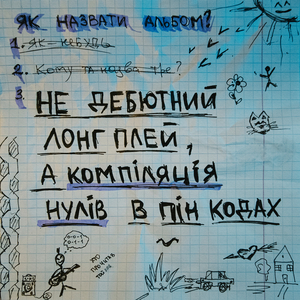 ЯК НАЗВАТИ АЛЬБОМ?
1. ЯК-НЕБУДЬ
2. Кому та назва тре?
3. НЕ ДЕБЮТНИЙ
ЛОНГ ПЛЕЙ,
А КОМПІЛЯЦІЯ
НУЛІВ В ПІН КОДАХ